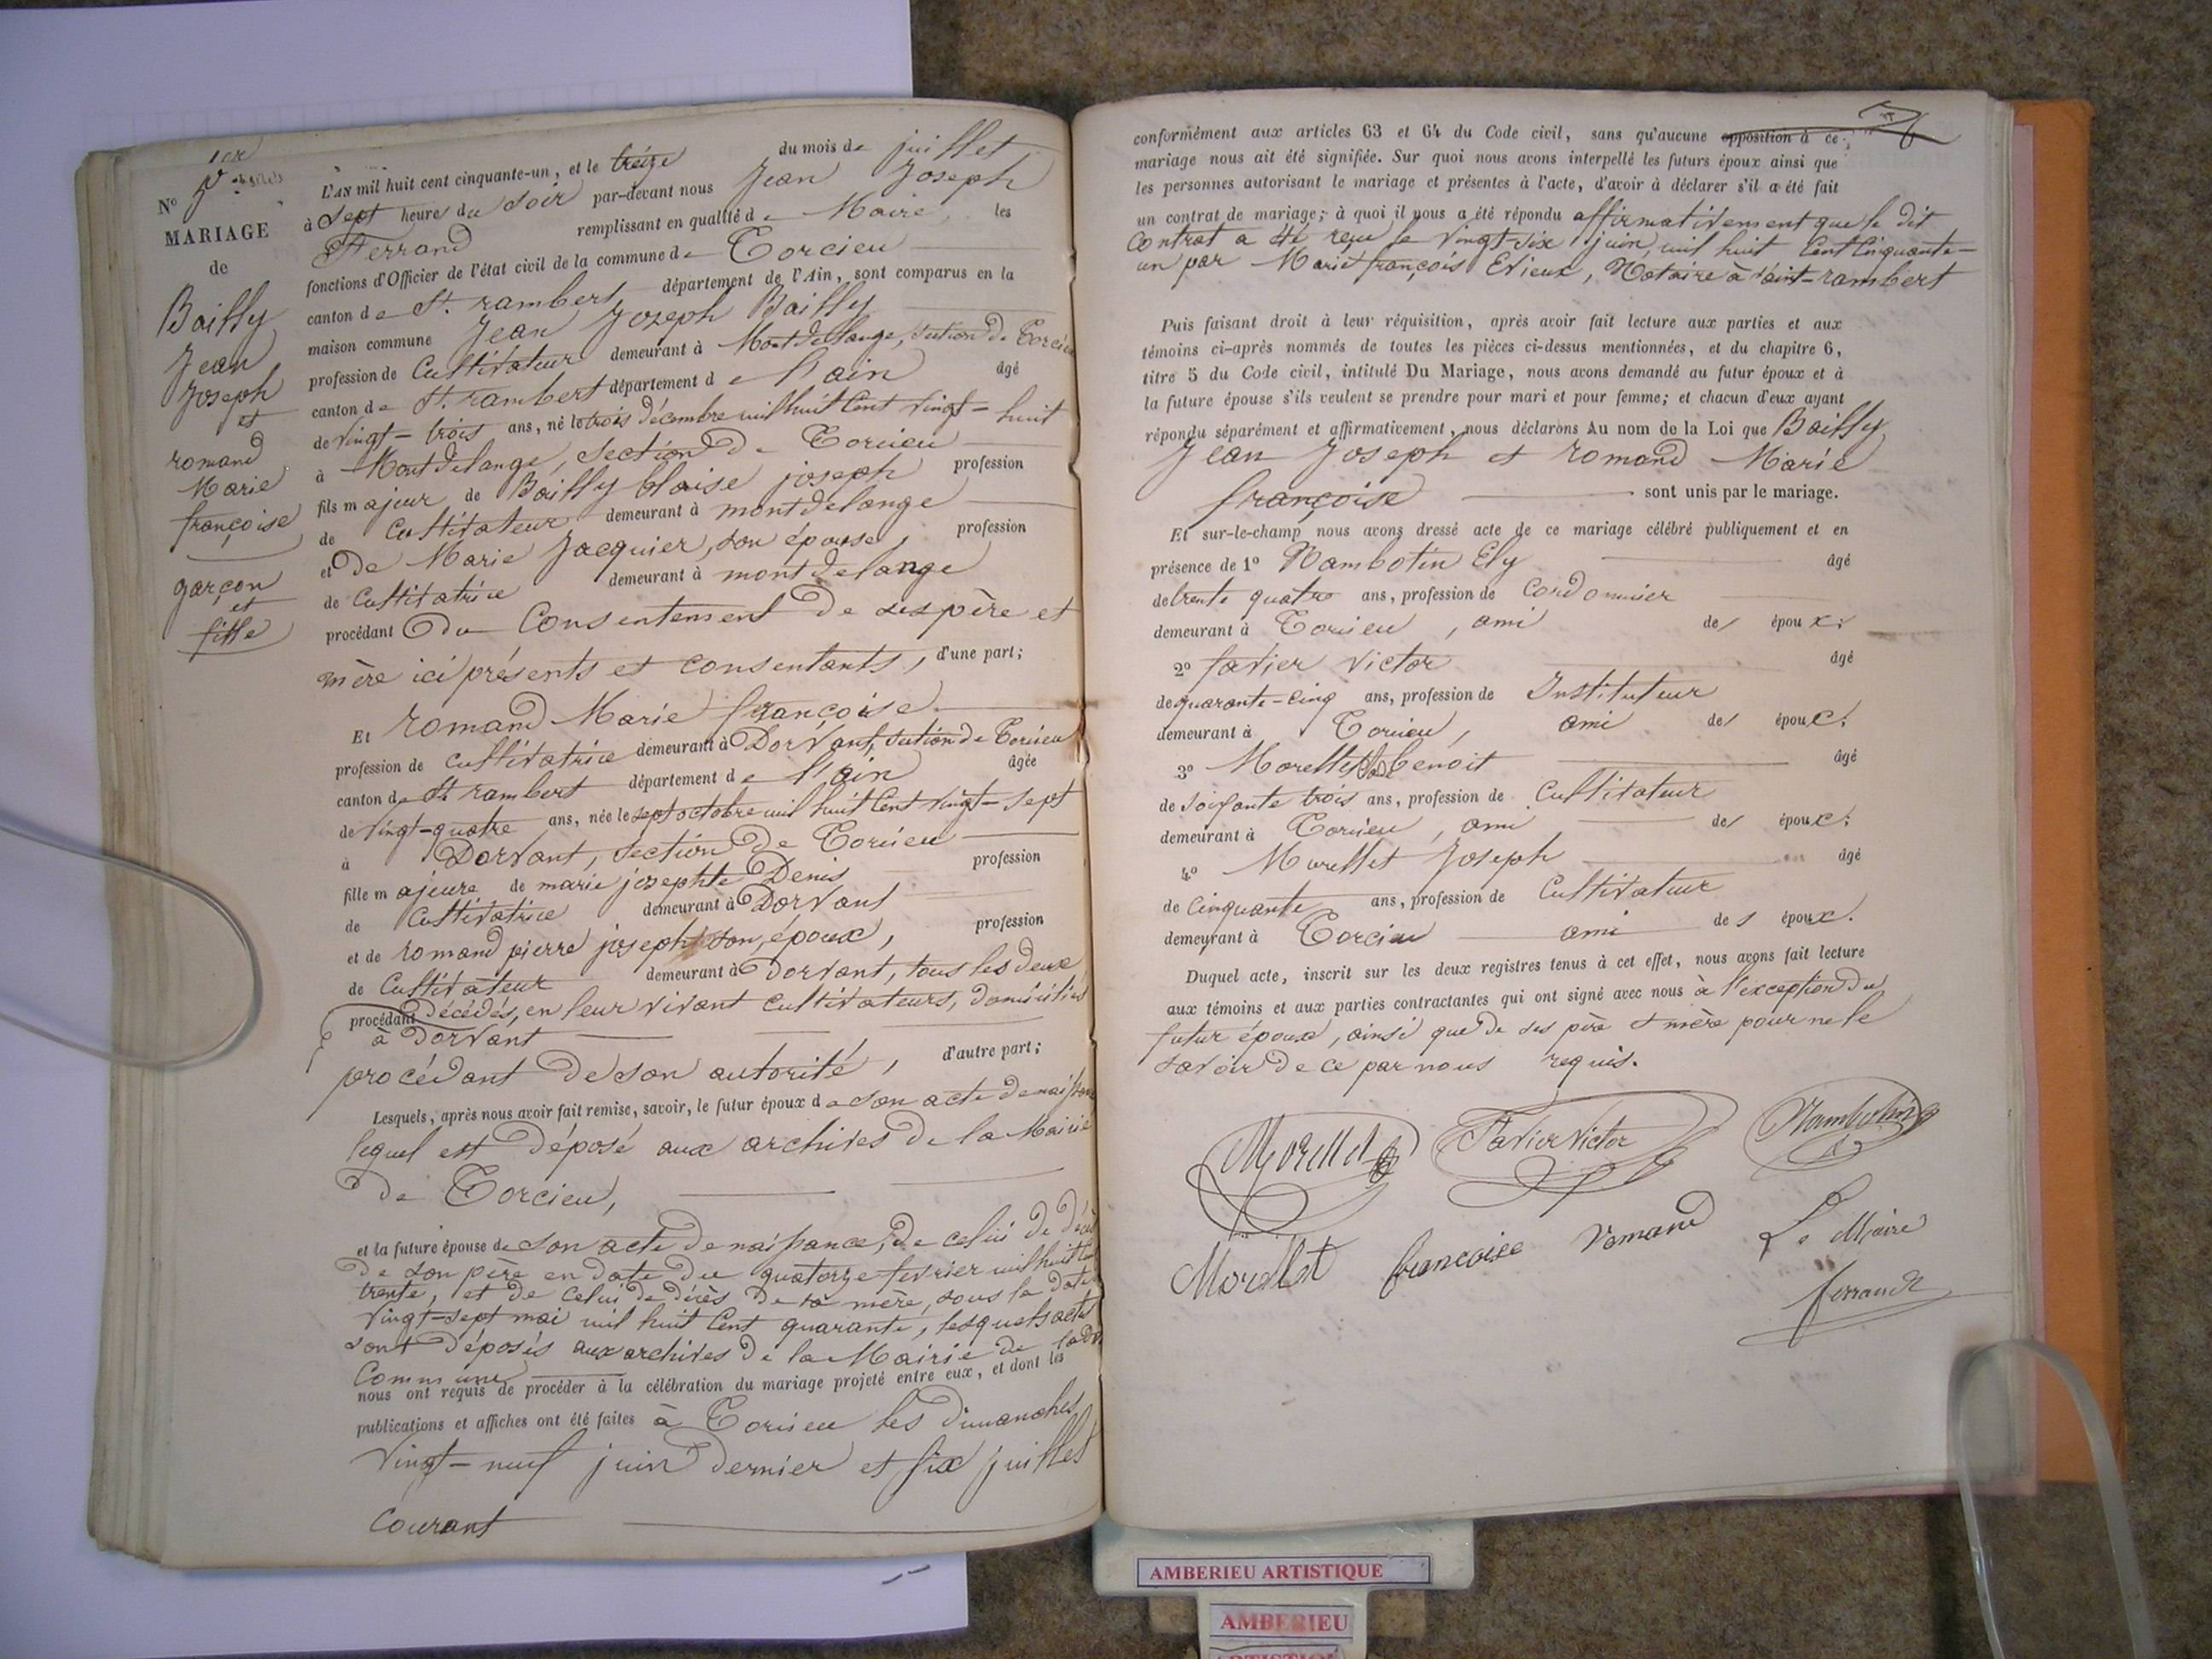 1er
N° 
MARIAGE
de
Bailly
Jean
Joseph
et
romand
Marie
françoise
garçon
et
fille
L'AN mil huit cent cinquante-un, et le treize du mois de juillet
à sept heure du soir par-devant nous Jean Joseph
Ferrand remplissant en qualité de Maire, les
fonctions d'Officier de l'état civil de la commune de Torcieu
canton de St. rambert département de l'Ain, sont comparus en la
maison commune Jean Joseph Bailly
profession de Cultivateur demeurant à Montdelange, section de Torcieu
canton de St. rambert département de l'ain âgé
de vingt-trois ans, né le trois décembre mil huit Cent vingt-huit
à Montdelange, section de Torcieu
fils majeur de Bailly blaise joseph profession
de Cultivateur demeurant à montdelange
et de Marie Jacquier, son épouse, profession
de Cultivatrice demeurant à montdelange
procédant Du Consentement de ses père et
mère ici présents et consentants, d'une part;
Et romand Marie françoise
profession de cultivatrice demeurant à Dorvant, section de Torcieu
canton de St. rambert département de l'ain âgée
de vingt-quatre ans, née le sept octobre mil huit Cent vingt-sept
à Dorvant, section de Torcieu
fille majeure de marie josephte Denis profession
de Cultivatrice demeurant à Dorvant
et de romand pierre joseph son époux, profession
de Cultivateur demeurant à Dorvant, tous les deux
procédant décédés, en leur vivant cultivateurs, domiciliés
à Dorvant
procédant de son autorité, d'autre part;
Lesquels, après nous avoir fait remise, savoir, le futur époux de son acte de naissance
lequel est déposé aux archives de la Mairie
de Torcieu,
et la future épouse de son acte de naissance, de celui de décès
de son père en date du quatorze fevrier mil huit Cent
trente, et de celui de décès de sa mère, sous la date
vingt-sept mai mil huit Cent quarante, lesquels actes
sont déposés aux archives de la Mairie de ladite
Commune
nous ont requis de procéder à la célébration du mariage projeté entre eux, et dont les
publications et affiches ont été faites à Torcieu les dimanches
vingt-neuf juin dernier et six juillet
courant
conformément aux articles 63 et 64 du Code civil, sans qu'aucune opposition à ce
mariage nous ait été signifiée. Sur quoi nous avons interpellé les futurs époux ainsi que
les personnes autorisant le mariage et présentes à l'acte, d'avoir à déclarer s'il a été fait
un contrat de mariage; à quoi il nous a été répondu affirmativement que le dit
Contrat a été reçu le vingt-six juin, mil huit Cent Cinquante-
un par Marie françois Evieux, Notaire à saint-rambert
Puis faisant droit à leur réquisition, après avoir fait lecture aux parties et aux
témoins ci-après nommés de toutes les pièces ci-dessus mentionnées, et du chapitre 6,
titre 5 du Code civil, intitulé Du Mariage, nous avons demandé au futur époux et à
la future épouse s'ils veulent se prendre pour mari et pour femme; et chacun d'eux ayant
répondu séparément et affirmativement, nous déclarons Au nom de la Loi que Bailly
Jean Joseph et romand Marie
françoise sont unis par le mariage.
Et sur-le-champ nous avons dressé acte de ce mariage célébré publiquement et en
présence de 1° Nambotin Ely âgé
de trente quatre ans, profession de Cordonnier
demeurant à Torcieu, ami des époux.
2° favier victor âgé
de quarante-cinq ans, profession de Instituteur
demeurant à Torcieu, ami des époux.
3° Morellet benoit âgé
de soixante trois ans, profession de Cultivateur
demeurant à Torcieu, ami des époux.
4° Morellet Joseph âgé
de Cinquante ans, profession de Cultivateur
demeurant à Torcieu ami des époux.
Duquel acte, inscrit sur les deux registres tenus à cet effet, nous avons fait lecture
aux témoins et aux parties contractantes qui ont signé avec nous à l'exception du
futur époux, ainsi que de ses père et mère pour ne le
savoir de ce par nous requis.
Morellet Favier Victor Nambotin
Morellet francoise Romand Le Maire
ferrand
AMBERIEU ARTISTIQUE
AMBERIEU
ARTISTIQUE